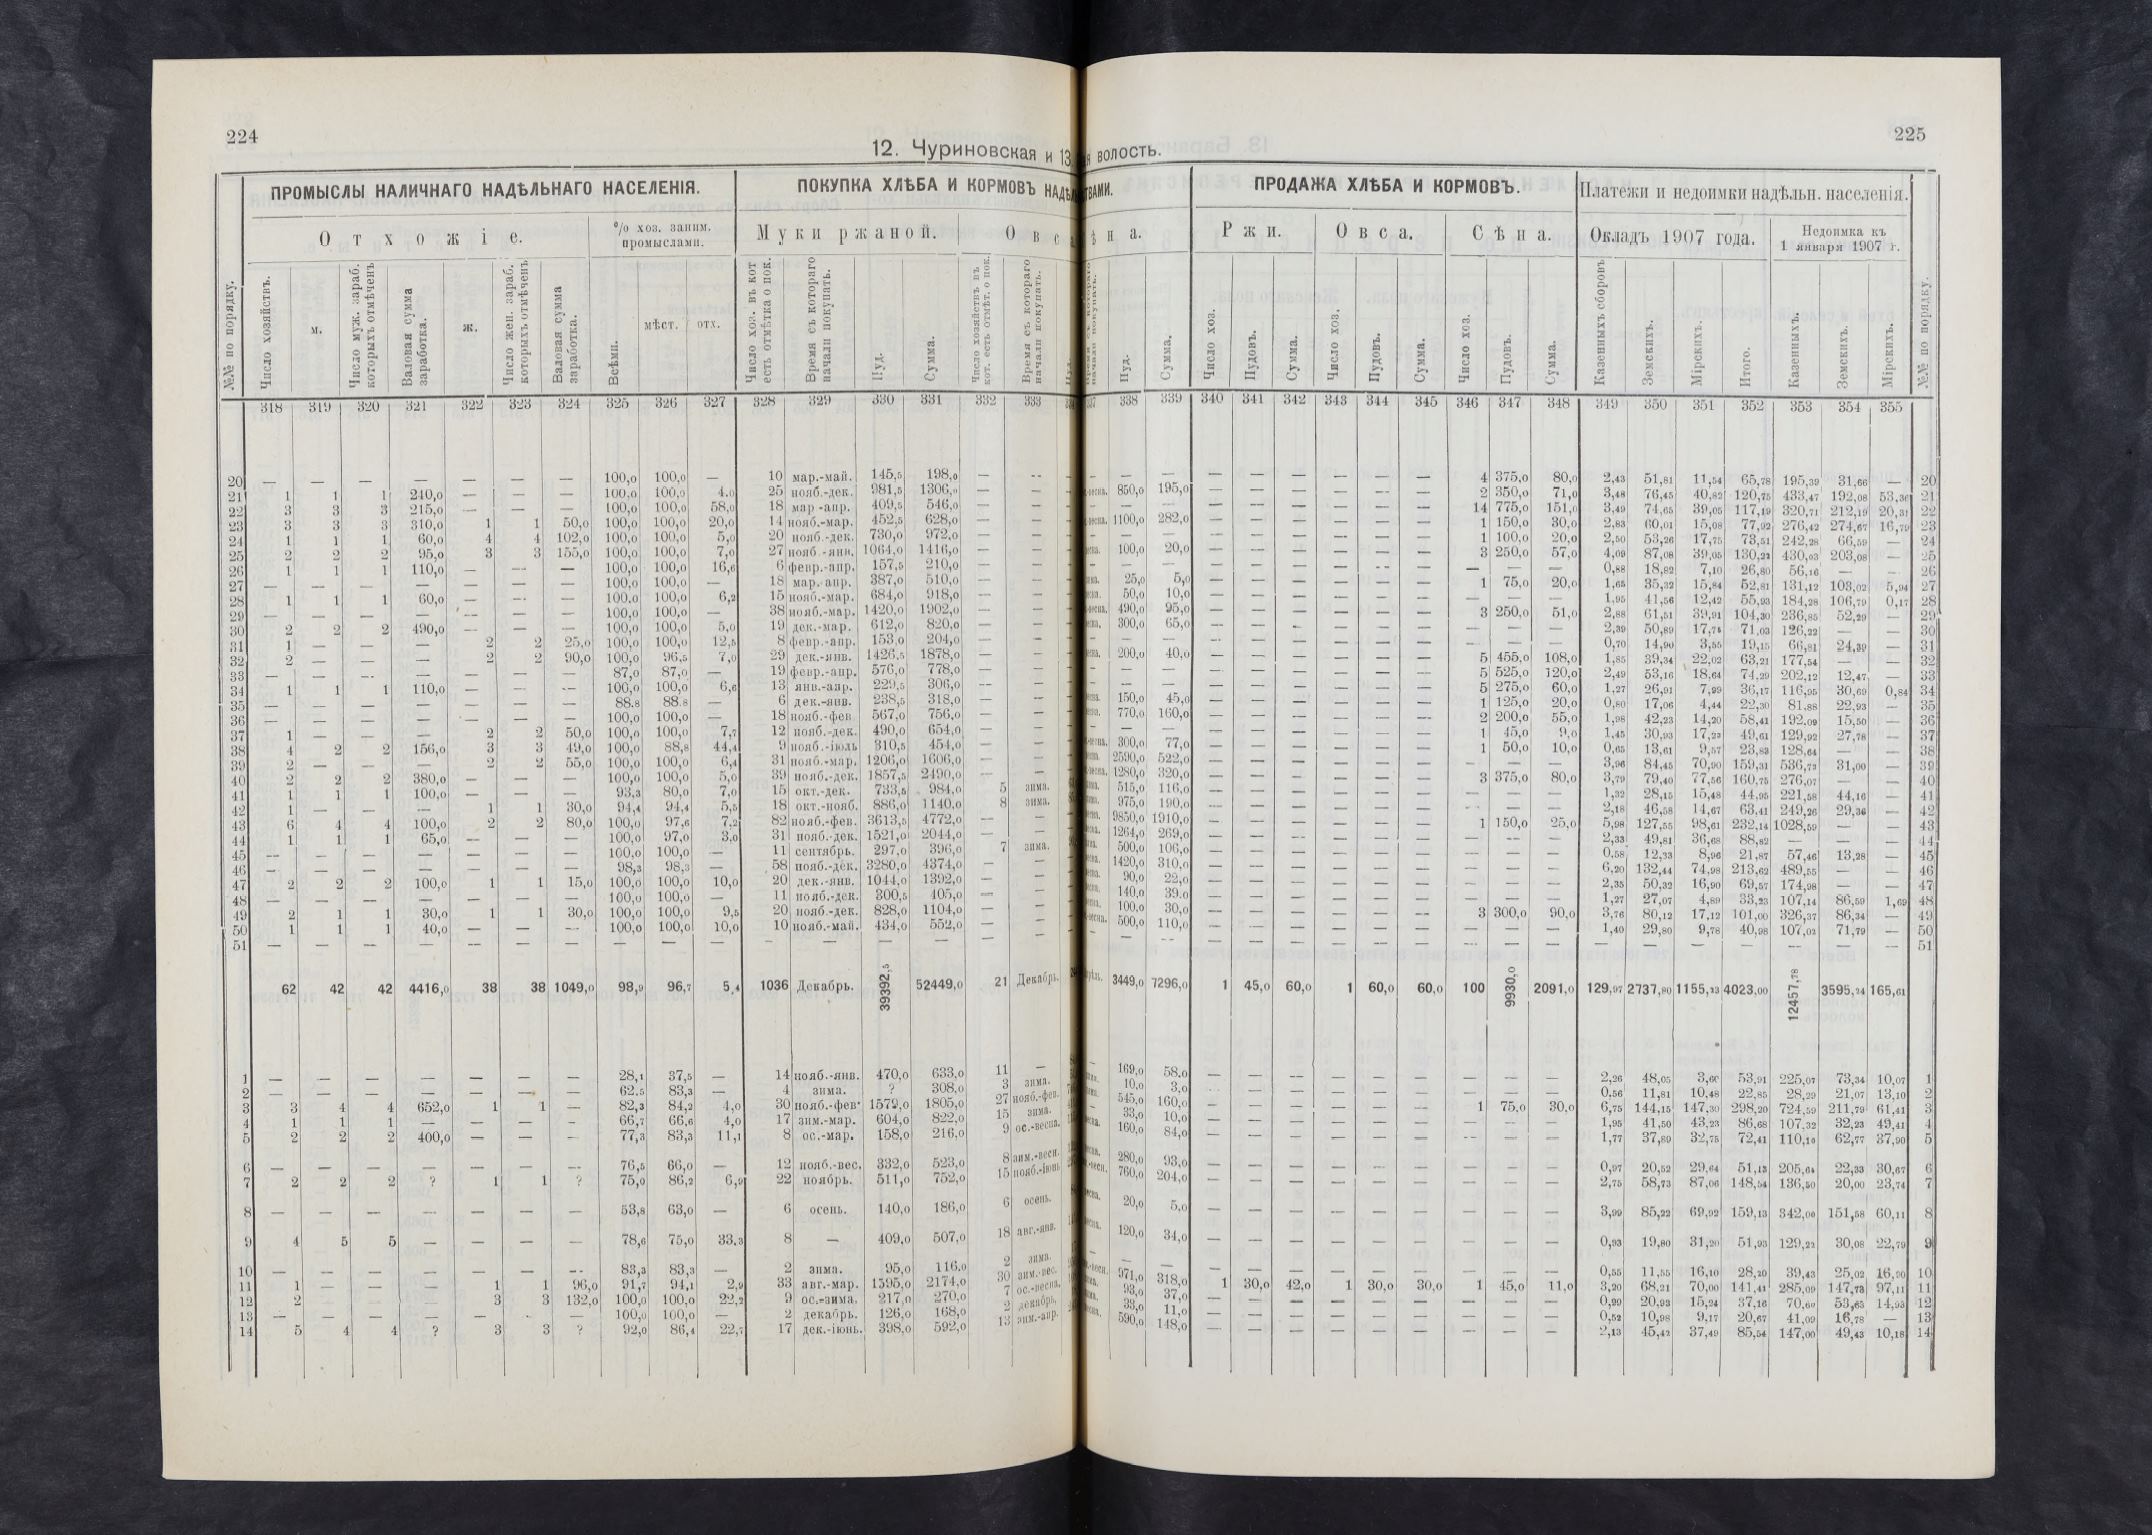 224
225
12. Чуриновская и 13
я волость.
ПРОМЫСЛЫ НАЛИЧНАГО НАДѢЛЬНАГО НАСЕЛЕНІЯ.
ПОКУПКА ХЛѢБА И КОРМОВЪ
ПРОДАЖА ХЛѢБА И КОРМОВЪ.
Платежи и недоимки надѣльн. населенія.
Отхожіе.
% хоз. заним. промыслами.
Муки ржаной.
Ржи.
Овса.
Сѣна.
Окладъ 1907 года.
Недоимка къ 1 января 1907 г.
№№ по порядку.
Число хозяйствъ.
м.
Число муж. зараб. которыхъ отмѣченъ
Валовая сумма заработка.
ж.
Число жен. зараб. которыхъ отмѣченъ
Валовая сумма заработка.
Всѣми.
мѣст.
отх.
Число хоз. въ кот есть отмѣтка о пок.
Время съ котораго начали покупать.
Пуд.
Сумма.
Число хозяйствъ въ кот. есть отмѣт. о пок.
Время съ котораго начали покупать.
Пуд.
Сумма.
Число хоз.
Пудовъ.
Сумма.
Число хоз.
Пудовъ.
Сумма.
Число хоз.
Пудовъ.
Сумма.
Казенныхъ сборовъ
Земскихъ.
Мірскихъ.
Итого.
Казенныхъ.
Земскихъ.
Мірскихъ.
№№ по порядку.
318 319 320 321 322 323 324 325 326 327 328 329 330 331 332 333 338 339 340 341 342 343 344 345 346 347 348 349 350 351 352 353 354 355
20 — — — — — — — 100,0 100,0 — 10 мар.-май. 145,5 198,0 — — — — — — — — — 4 375,0 80,0 2,43 51,81 11,54 65,78 195,39 31,66 — 20
21 1 1 1 240,0 — — — 100,0 100,0 4,0 25 нояб.-дек. 981,5 1306,0 — 850,0 195,0 — — — — — — 2 350,0 71,0 3,48 76,45 40,82 120,75 433,47 192,08 53,36 21
22 3 3 3 215,0 — — — 100,0 100,0 58,0 18 мар-апр. 409,5 546,0 — 14 775,0 151,0 3,49 74,65 39,05 117,19 320,71 212,19 20,31 22
23 3 3 3 310,0 1 1 50,0 100,0 100,0 20,0 14 нояб.-мар. 452,5 628,0 — 1100,0 282,0 — 1 150,0 30,0 2,83 60,01 15,08 77,92 276,42 274,67 16,79 23
24 1 1 1 60,0 4 4 102,0 100,0 100,0 5,0 20 нояб.-дек. 730,0 972,0 — 1 100,0 20,0 2,50 53,26 17,75 73,51 242,28 66,59 — 24
25 2 2 2 95,0 3 3 155,0 100,0 100,0 7,0 27 нояб.-янн. 1064,0 1416,0 — 100,0 20,0 — 3 250,0 57,0 4,09 87,08 39,05 130,22 430,03 203,08 — 25
26 1 1 1 110,0 — — — 100,0 100,0 16,6 6 февр.-апр. 157,5 210,0 — 0,88 18,82 7,10 26,80 56,16 — — 26
27 — — — — — — — 100,0 100,0 — 18 мар.-апр. 387,0 510,0 — 25,0 5,0 — 1 75,0 20,0 1,65 35,32 15,84 52,81 131,12 103,02 5,94 27
28 1 1 1 60,0 — — — 100,0 100,0 6,2 15 нояб.-мар. 684,0 918,0 — 50,0 10,0 — 1,95 41,56 12,42 55,93 184,28 106,79 0,17 28
29 — — — — — — — 100,0 100,0 — 38 нояб.-мар. 1420,0 1902,0 — 490,0 95,0 — 3 250,0 51,0 2,88 61,51 39,91 104,30 236,85 52,29 — 29
30 2 2 2 490,0 — — — 100,0 100,0 5,0 19 дек.-мар. 612,0 820,0 — 300,0 65,0 — 2,39 50,89 17,75 71,03 126,22 — — 30
31 1 — — — 2 2 25,0 100,0 100,0 12,5 8 февр.-апр. 153,0 204,0 — 0,70 14,90 3,55 19,15 66,81 24,39 — 31
32 2 — — — 2 2 90,0 100,0 96,5 7,0 29 дек.-янв. 1426,5 1878,0 — 200,0 40,0 — 5 455,0 108,0 1,85 39,34 22,02 63,21 177,54 — — 32
33 — — — — — — — 87,0 87,0 — 19 февр.-апр. 576,0 778,0 — 5 525,0 120,0 2,49 53,16 18,64 74,29 202,12 12,47 — 33
34 1 1 1 110,0 — — — 100,0 100,0 6,6 13 янв.-апр. 229,5 306,0 — 5 275,0 60,0 1,27 26,91 7,99 36,17 116,95 30,69 0,84 34
35 — — — — — — — 88,8 88,8 — 6 дек.-янв. 238,5 318,0 — 150,0 45,0 — 1 125,0 20,0 0,80 17,06 4,44 22,30 81,88 22,93 — 35
36 — — — — — — — 100,0 100,0 — 18 нояб.-фев 567,0 756,0 — 770,0 160,0 — 2 200,0 55,0 1,98 42,23 14,20 58,41 192,09 15,50 — 36
37 1 — — — 2 2 50,0 100,0 100,0 7,7 12 нояб.-дек. 490,0 654,0 — 1 45,0 9,0 1,45 30,93 17,23 49,61 129,92 27,78 — 37
38 4 2 2 156,0 3 3 49,0 100,0 88,8 44,4 9 нояб.-іюль 310,5 454,0 — 300,0 77,0 — 1 50,0 10,0 0,65 13,61 9,57 23,83 128,64 — — 38
39 2 — — — 2 2 55,0 100,0 100,0 6,4 31 нояб.-мар. 1206,0 1606,0 — 2590,0 522,0 — 3,96 84,45 70,90 159,31 536,73 31,00 — 39
40 2 2 2 380,0 — — — 100,0 100,0 5,0 39 нояб.-дек. 1857,5 2490,0 — 1280,0 320,0 — 3 375,0 80,0 3,79 79,40 77,56 160,75 276,07 — — 40
41 1 1 1 100,0 — — — 93,3 80,0 7,0 15 окт.-дек. 733,5 984,0 5 зима. 515,0 116,0 — 1,32 28,15 15,48 44,95 221,58 44,16 — 41
42 1 — — — 1 1 30,0 94,4 94,4 5,5 18 окт.-нояб. 886,0 1140,0 8 зима. 975,0 190,0 — 2,18 46,58 14,67 63,41 249,26 29,36 — 42
43 6 4 4 100,0 2 2 80,0 100,0 97,6 7,2 82 нояб.-фев. 3613,5 4772,0 — 9850,0 1910,0 — 1 150,0 25,0 5,98 127,55 98,61 232,14 1028,59 — — 43
44 1 1 1 65,0 — — — 100,0 97,0 3,0 31 нояб.-дек. 1521,0 2044,0 — 1264,0 269,0 — 2,33 49,81 36,68 88,82 — — — 44
45 — — — — — — — 100,0 100,0 — 11 сентябрь. 297,0 396,0 7 зима. 500,0 106,0 — 0,58 12,33 8,96 21,87 57,46 13,28 — 45
46 — — — — — — — 98,3 98,3 — 58 нояб.-дек. 3280,0 4374,0 — 1420,0 310,0 — 6,20 132,44 74,98 213,62 489,55 — — 46
47 2 2 2 100,0 1 1 15,0 100,0 100,0 10,0 20 дек.-янв. 1044,0 1392,0 — 90,0 22,0 — 2,35 50,32 16,90 69,57 174,98 — — 47
48 — — — — — — — 100,0 100,0 — 11 нояб.-дек. 300,5 405,0 — 140,0 39,0 — 1,27 27,07 4,89 33,23 107,14 86,59 1,69 48
49 2 1 1 30,0 1 1 30,0 100,0 100,0 9,5 20 нояб.-дек. 828,0 1104,0 — 100,0 30,0 — 3 300,0 90,0 3,76 80,12 17,12 101,00 326,37 86,34 — 49
50 1 1 1 40,0 — — — 100,0 100,0 10,0 10 нояб.-май. 434,0 552,0 — 500,0 110,0 — 1,40 29,80 9,78 40,98 107,02 71,79 — 50
51 — — — — — — — — — — — — — — — — — — — — — — — — — — — — — — 51
62 42 42 4416,0 38 38 1049,0 98,9 96,7 5,4 1036 Декабрь. 39392,5 52449,0 21 Декабрь. 3449,0 7296,0 1 45,0 60,0 1 60,0 60,0 100 9930,0 2091,0 129,97 2737,80 1155,23 4023,00 12457,78 3595,24 165,61
1 — — — — — — — 28,1 37,5 — 14 нояб.-янв. 470,0 633,0 11 — 169,0 58,0 — 2,26 48,05 3,60 53,91 225,07 73,34 10,07 1
2 — — — — — — — 62,5 83,3 — 4 зима. ? 308,0 3 зима. 10,0 3,0 — 0,56 11,81 10,48 22,85 28,29 21,07 13,10 2
3 3 4 4 652,0 1 1 — 82,3 84,2 4,0 30 нояб.-фев· 1579,0 1805,0 27 нояб.-фев. 545,0 160,0 — 1 75,0 30,0 6,75 144,15 147,30 298,20 724,59 211,79 61,41 3
4 1 1 1 — — — — 66,7 66,6 4,0 17 зим.-мар. 604,0 822,0 15 зима. 33,0 10,0 — 1,95 41,50 43,23 86,68 107,32 32,23 49,41 4
5 2 2 2 400,0 — — — 77,3 83,3 11,1 8 ос.-мар. 158,0 216,0 9 ос.-весна. 160,0 84,0 — 1,77 37,89 32,75 72,41 110,10 62,77 37,90 5
6 — — — — — — — 76,5 66,0 — 12 нояб.-вес. 332,0 523,0 8 зим.-весн. 280,0 93,0 — 0,97 20,52 29,64 51,13 205,64 22,33 30,67 6
7 2 2 2 ? 1 1 ? 75,0 86,2 6,9 22 ноябрь. 511,0 752,0 15 нояб.-іюнь 760,0 204,0 — 2,75 58,73 87,06 148,54 136,50 20,00 23,74 7
8 — — — — — — — 53,8 63,0 — 6 осень. 140,0 186,0 6 осень. 20,0 5,0 — 3,99 85,22 69,92 159,13 342,00 151,58 60,11 8
9 4 5 5 — — — — 78,6 75,0 33,3 8 — 409,0 507,0 18 авг.-янв. 120,0 34,0 — 0,93 19,80 31,20 51,93 129,22 30,08 22,79 9
10 — — — — — — — 83,3 83,3 — 2 зима. 95,0 116,0 2 зима. — — — 0,55 11,55 16,10 28,20 39,43 25,02 16,90 10
11 1 — — — 1 1 96,0 91,7 94,1 2,9 33 авг.-мар. 1595,0 2174,0 30 зим.-вес. 971,0 318,0 1 30,0 42,0 1 30,0 30,0 1 45,0 11,0 3,20 68,21 70,00 141,41 285,09 147,73 97,11 11
12 2 — — — 3 3 132,0 100,0 100,0 22,2 9 ос.-зима. 217,0 270,0 7 ос.-весна. 93,0 37,0 — 0,99 20,93 15,24 37,16 70,60 53,63 14,93 12
13 — — — — — — — 100,0 100,0 — 2 декабрь. 126,0 168,0 2 декабрь. 33,0 11,0 — 0,52 10,98 9,17 20,67 41,09 16,78 — 13
14 5 4 4 ? 3 3 ? 92,0 86,4 22,7 17 дек.-іюнь. 398,0 592,0 13 зим.-апр. 590,0 148,0 — 2,13 45,42 37,49 85,54 147,00 49,43 10,18 14